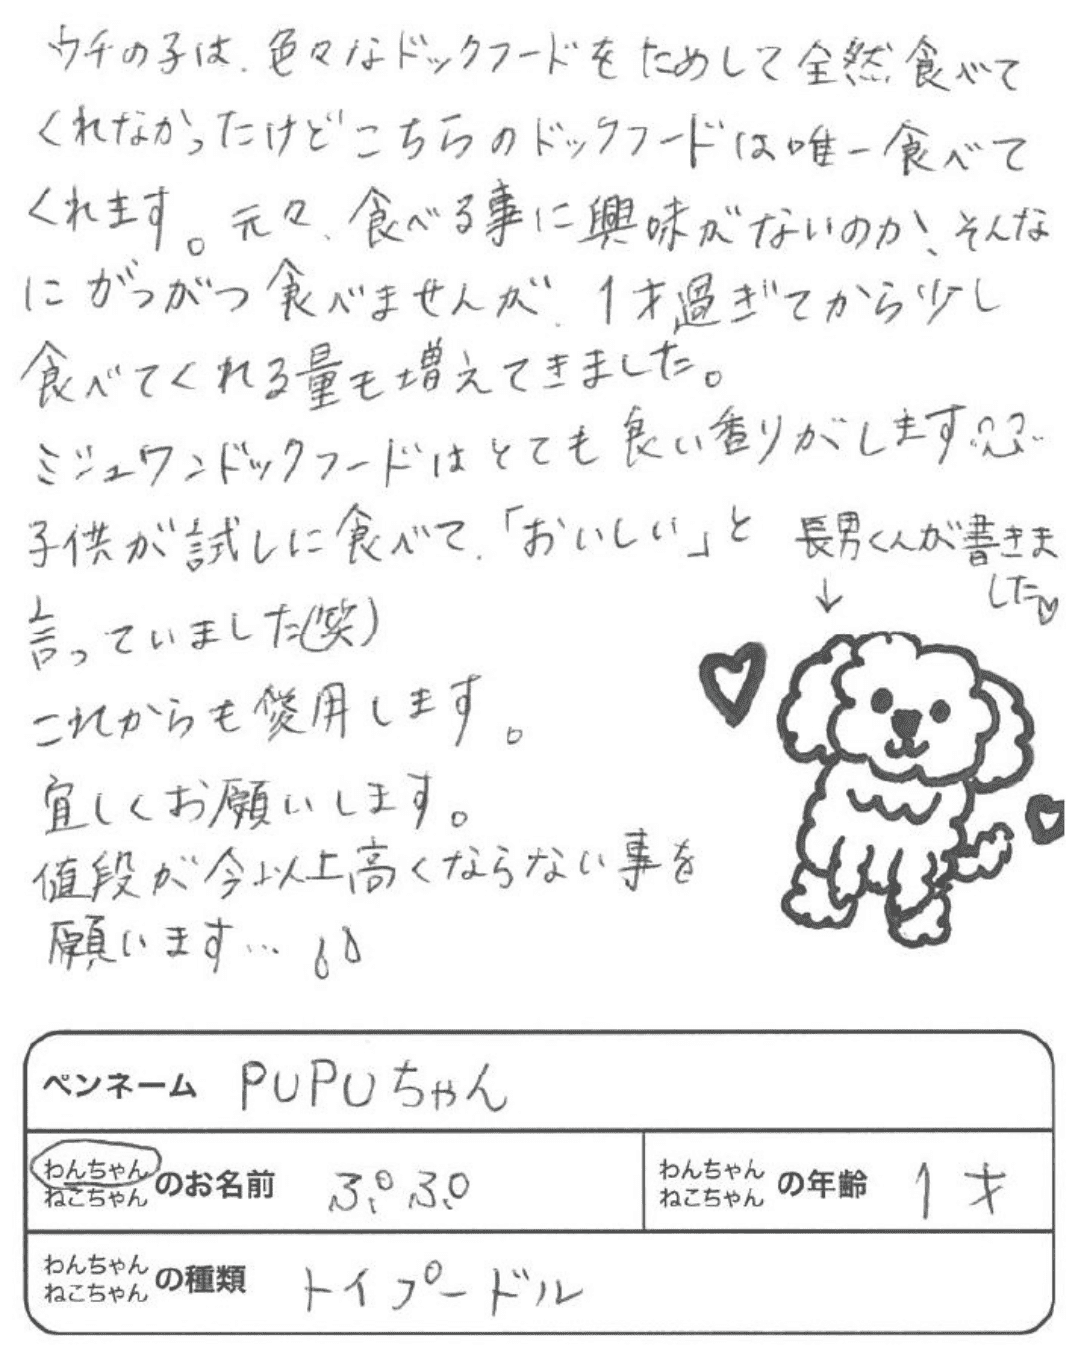 ウチの子は、色々なドックフードをためして全然食べて
くれなかったけどこちらのドックフードは唯一食べて
くれます。元々、食べる事に興味がないのか、そんな
にがつがつ食べませんが、1才過ぎてから少し
食べてくれる量も増えてきました。
ミシュワンドックフードはとても良い香りがします
子供が試しに食べて、「おいしい」と
言っていました(笑)
これからも愛用します。
宜しくお願いします。
値段が今以上高くならない事を
願います…
長男くんが書きま
した♡
↓
ペンネーム PUPUちゃん
わんちゃん
ねこちゃん のお名前 ぷぷ
わんちゃん
ねこちゃん の年齢 1才
わんちゃん
ねこちゃん の種類 トイプードル